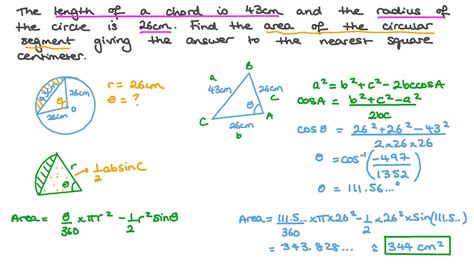 The length of a chord is 43cm and the radius of
the circle is 26cm. Find the area of the circular
segment giving the answer to the nearest square
centimeter.
43cm
26cm
θ
O
26cm
r = 26cm
θ = ?
B
a
43cm
26cm
c
θ
C
26cm
A
b
a² = b² + c² - 2bccosA
cosA = b² + c² - a²
2bc
cosθ = 26² + 26² - 43²
2 x 26 x 26
θ = cos⁻¹(-497
1352)
θ = 111.56...°
r
θ
1/2 absinC
Area = θ/360 x πr² - 1/2 r² sinθ
Area = 111.5.../360 x π x 26² - 1/2 x 26² x sin(111.5..)
= 343.828... ≈ 344 cm²